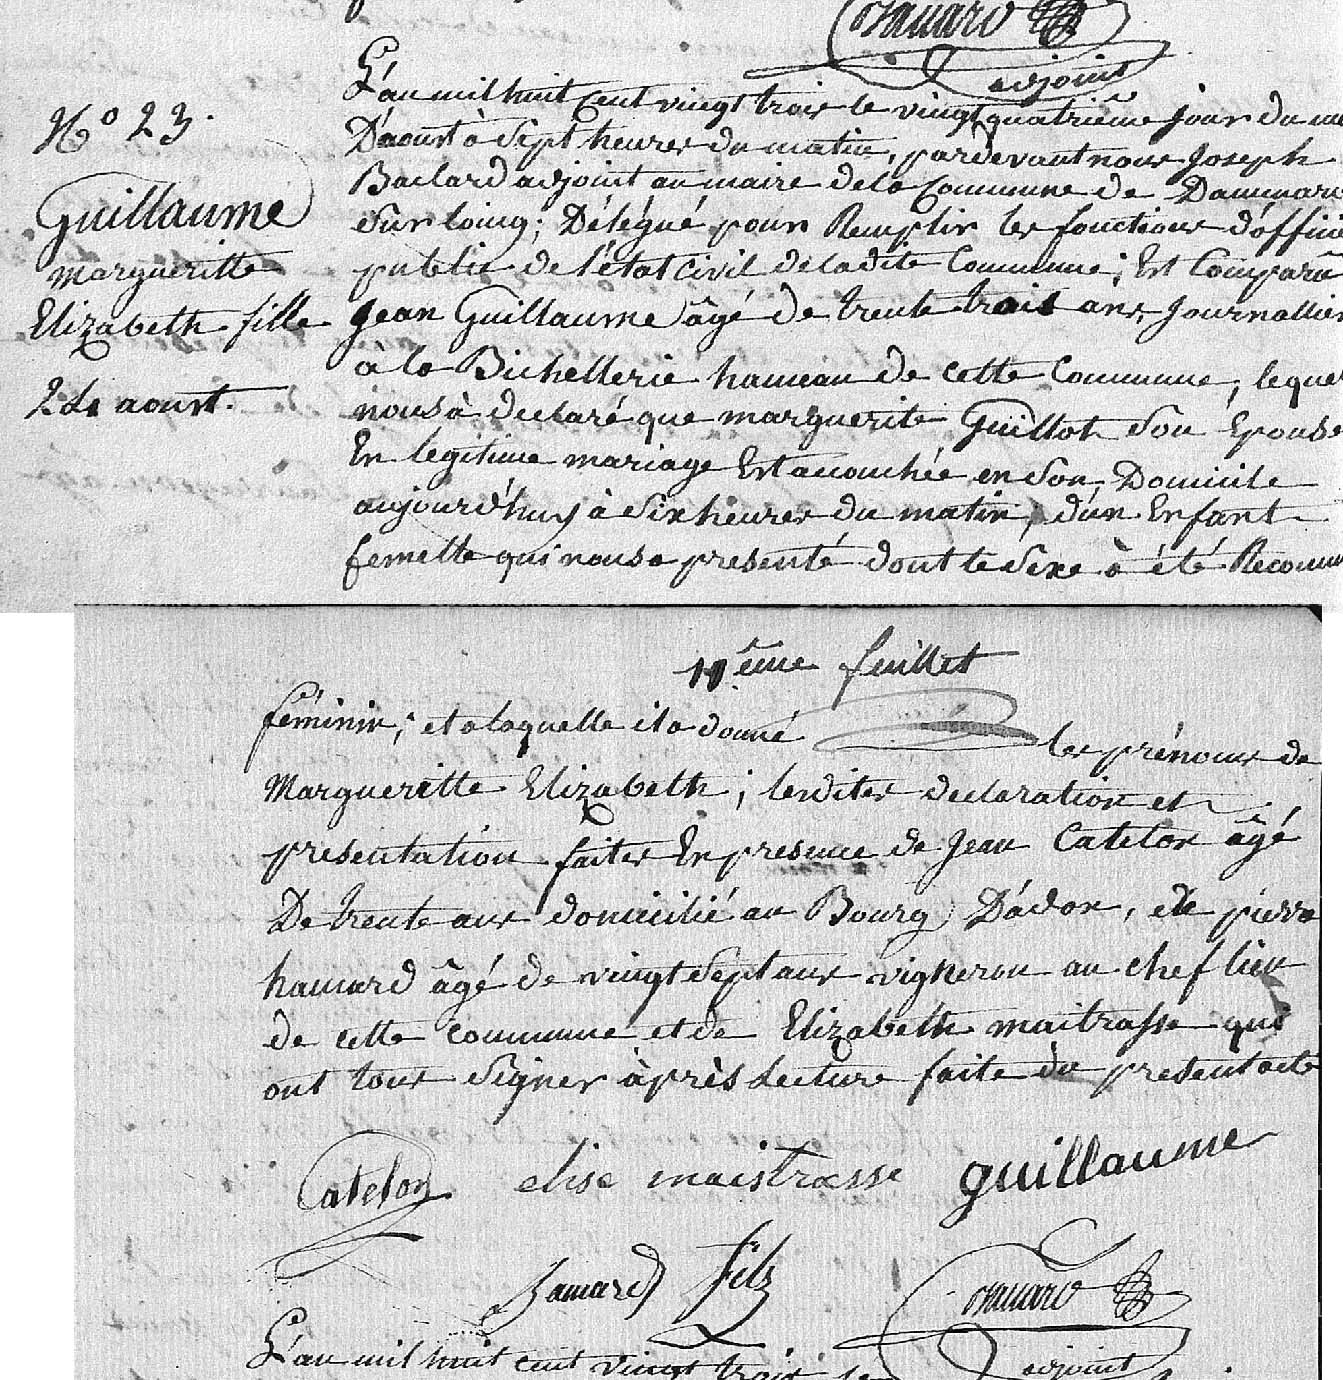 adjoint
N.o 23.
Guillaume
margueritte
Elizabeth fille
24 aoust.
L'an mil huit cent vingt trois le vingt quatrième jour du
D'aoust à Sept heures du matin, pardevant nous Joseph
adjoint au maire de la Commune de
Sur loing; Délégué pour Remplir les fonctions d'offici
public de l'état civil de ladite Commune; Est Comparu
Jean Guillaume âgé de trente trois ans, Journallier
à la Bichellerie hameau de cette Commune, leque
nous à declaré que marguerite Guillot Son Epouse
En legitime mariage Est accouchée en Son Domicile
aujourd'huy à Six heures du matin, d'un Enfant
femelle qui nous a presenté dont le Sexe à été Reconnu
ème feuillet
féminin; et a laquelle il a donné les prénoms de
Margueritte Elizabeth; lesdites declaration et
presentation faites En presence de Jean Catelon âgé
De trente ans domicilié au Bourg D'adon, de pierre
hamard âgé de vingt Sept ans vigneron au chef lieu
de cette commune et de Elizabeth maitrasse qui
ont tous Signer après Lecture faite du present acte
Catelon elise maistrasse guillaume
hamard fils
adjoint
L'an mil huit cent vingt trois le